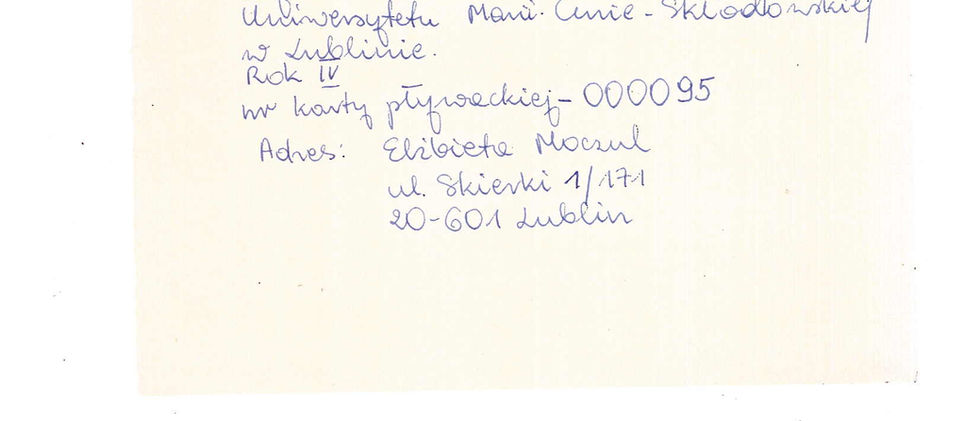 Uniwersytetu Marii Curie-Skłodowskiej
w Lublinie.
Rok IV
nr karty pływackiej - 000095
Adres: Elżbieta Moczul
ul. Skierki 1/171
20-601 Lublin